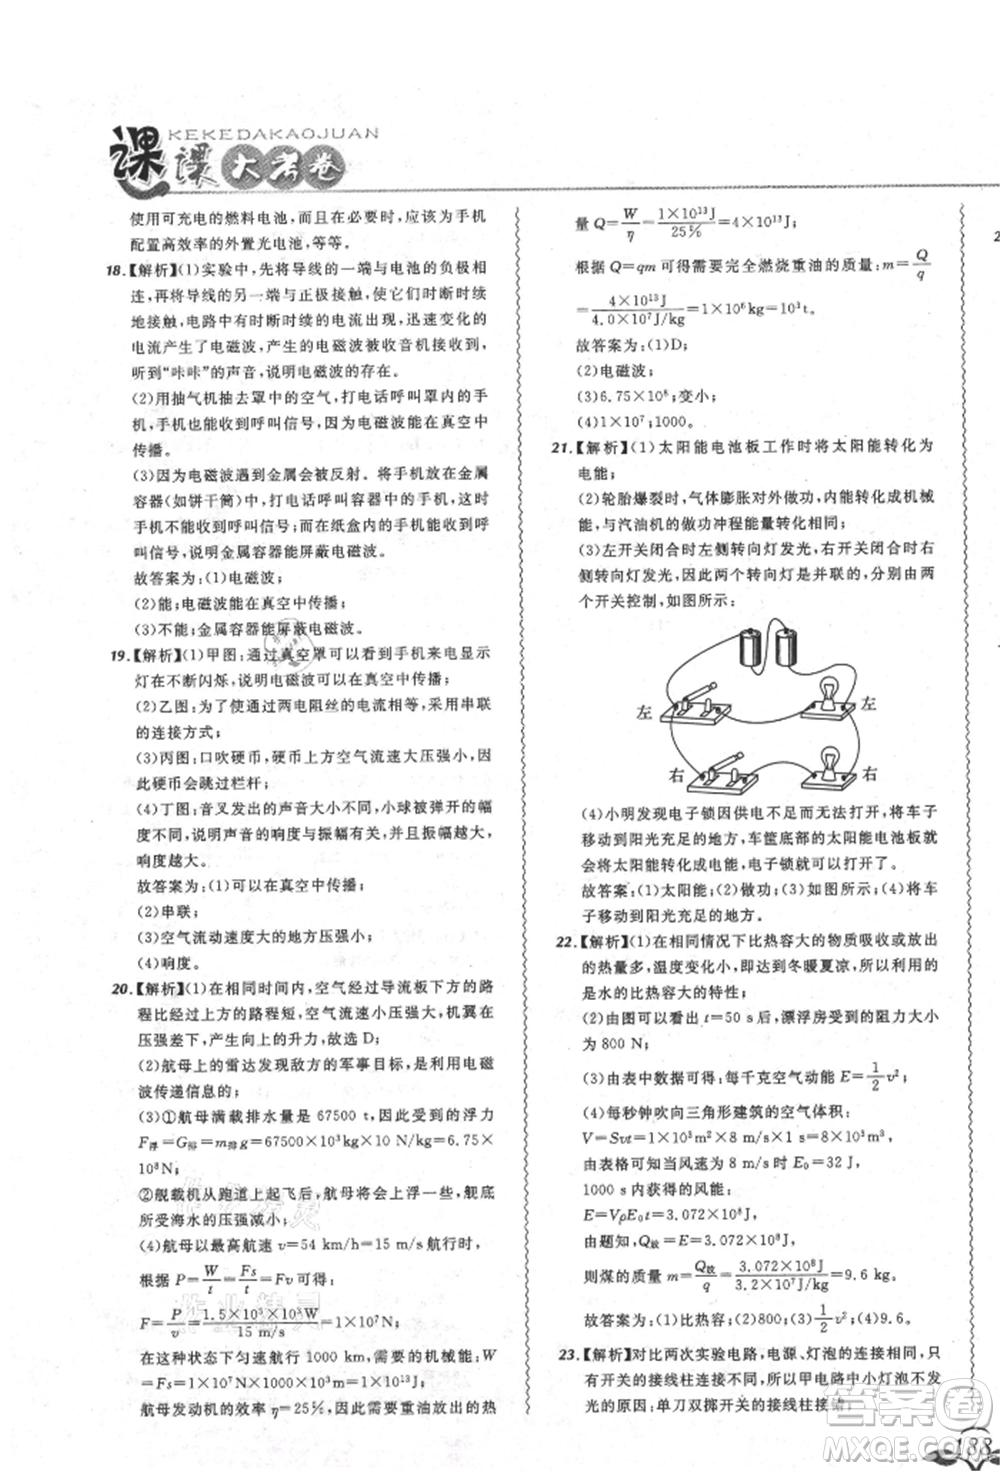 KEKEDAKAOJUAN
课课大考卷
使用可充电的燃料电池,而且在必要时,应该为手机
配置高效率的外置光电池,等等。
18.【解析】(1)实验中,先将导线的一端与电池的负极相
连,再将导线的一端与正极摩擦,这样时断时续
地接触,电路中有时断时续的电流出现,迅速变化的
电流产生了电磁波,产生的电磁波被收音机接收到,
听到“咔咔”的声音,说明电磁波的存在。
(2)用抽气机抽去罩中的空气,打电话呼叫罩中的手
机,手机能收到呼叫信号,说明电磁波可以在真空中
传播。
(3)因为电磁波遇到金属会被反射。将手机放在金属
容器(如饼干筒)中,打电话呼叫容器中的手机,这时
手机不能收到呼叫信号;而在纸盒内的手机能收到呼
叫信号,说明金属容器能屏蔽电磁波。
故答案为:(1)电磁波;
(2)能;电磁波能在真空中传播;
(3)不能;金属容器能屏蔽电磁波。
19.【解析】(1)甲图:通过真空罩可以看到手机来电显示
灯在不断闪烁,说明电磁波可以在真空中传播。
(2)乙图:为了使通过两电阻丝的电流相同,采用串联
的连接方式;
(3)丙图:口吹硬币,硬币上方空气流速大压强小,因
此硬币会跳过栏杆;
(4)丁图:音叉发出的声音大小不同,小球被弹开的幅
度不同,说明声音的响度与振幅有关,振幅越大,
响度越大。
故答案为:(1)可以在真空中传播;
(2)串联;
(3)空气流动速度大的地方压强小;
(4)响度。
20.【解析】(1)在相同时间内,空气经过导流板下方的路
程比经过上方的路程短,空气流速小压强大,机翼在
压强差下,产生向上的升力,故选 D;
(2)航母上的雷达发现敌方的军事目标,是利用电磁
波传递信息的。
(3)①航母满载排水量是 67500 t,因此受到的浮力
F浮=G排=m排g=67500×10³kg×10 N/kg=6.75×
10⁸N。
②舰载机从跑道上起飞后,航母将上浮一些,舰底
所受海水的压强减小。
(4)航母以最高航速 v=54 km/h=15 m/s航行时,
根据 P=W/t=Fs/t=Fv可得:
F=P/v=1.5×10⁸W/15 m/s=1×10⁷N。
在这种状态下匀速航行 1000 km,克服阻力做功
W=Fs=1×10⁷N×1000×10³m=1×10¹³J。
航母发动机的效率 η=25%,则需要重油放出的热
量 Q=W/η=1×10¹³J/25%=4×10¹³J
根据 Q=qm 可得需要完全燃烧重油的质量:m=Q/q
=4×10¹³J/4.0×10⁷J/kg=1×10⁶kg=10³t。
故答案为:(1)D;
(2)电磁波;
(3)6.75×10⁸;变小;
(4)1×10⁷;1000。
21.【解析】(1)太阳能电池板工作时将太阳能转化为
电能;
(2)轮胎爆裂时,气体膨胀对外做功,内能转化成机械
能,与汽油机的做功冲程能量转化相同;
(3)左开关闭合时左侧转向灯发光,右开关闭合时右
侧转向灯发光,因此两个转向灯是并联的,分别由两
个开关控制,如图所示:
左
左
右
右
(4)小明发现电子锁因供电不足而无法打开,将车子
移动到阳光充足的地方,车筐底部的太阳能电池板就
会将太阳能转化成电能,电子锁就可以打开了。
故答案:(1)太阳能;(2)做功;(3)如图所示;(4)将车子
移动到阳光充足的地方。
22.【解析】(1)在相同情况下比热容大的物质吸收或放出
的热量多,温度变化小,即达到冬暖夏凉,所以利用的
是水的比热容大的特性;
(2)由图可以看出 t=50 s后,漂浮房受到的阻力大小
为 800 N;
(3)由表中数据可得:每千克空气动能 E=1/2v²;
(4)每秒钟吹向三角形建筑的空气体积:
V=Svt=
由表格可知风速是8 m/s时 E₀=32 J,
1000 s内获得的风能:
E=VρE₀t=3.072×10⁸J
由题知,Q放=E=3.072×10⁸J,
则煤的质量 m=Q放/q=3.072×10⁸J/3.2×10⁷J/kg=9.6 kg,
故答案为:(1)比热容;(2)800;(3)1/2v²;(4)9.6。
23.【解析】对比两次实验电路,电源、灯泡的连接相同,只
有开关的接线柱连接不同,所以甲电路中小灯泡不发
光的原因:单刀双掷开关的接线柱接错;
答案圈
MXQE.COM
188